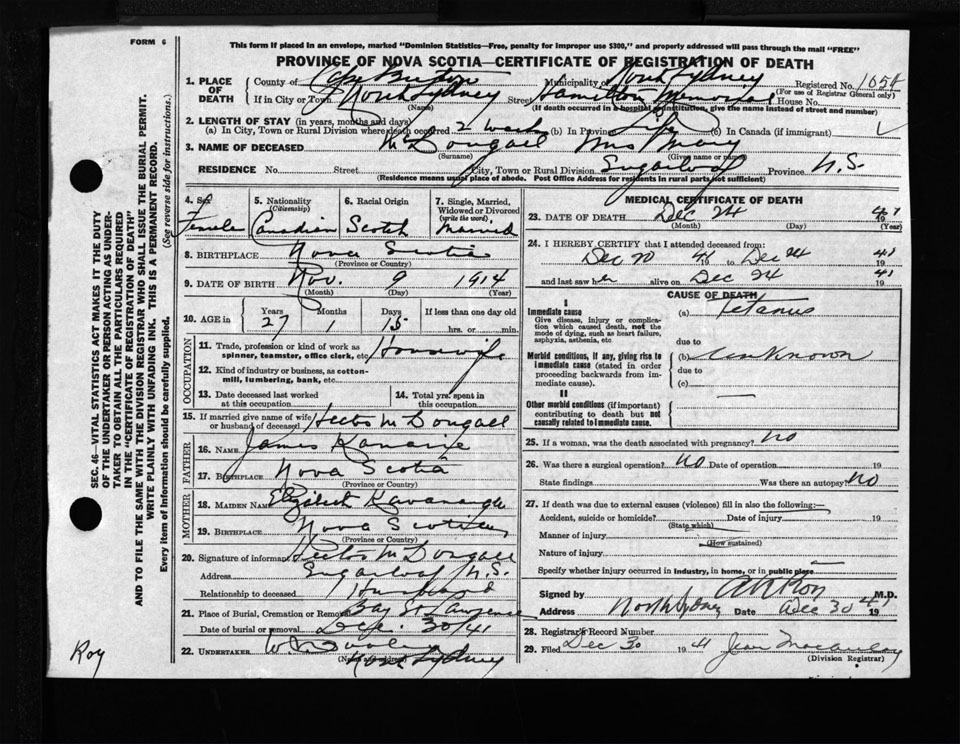 FORM 6
This form if placed in an envelope, marked "Dominion Statistics—Free, penalty for improper use $300," and properly addressed will pass through the mail "FREE"
PROVINCE OF NOVA SCOTIA—CERTIFICATE OF REGISTRATION OF DEATH
1. PLACE OF DEATH
County of Cape Breton Municipality of North Sydney Registered No.
(For use of Registrar General only)
If in City or Town North Sydney Street Hamilton Memorial House No.
(Name) (If death occurred in a hospital or institution, give the name instead of street and number)
2. LENGTH OF STAY (in years, months and days)
(a) In City, Town or Rural Division where death occurred 2 weeks (b) In Province Life (c) In Canada (if immigrant)
3. NAME OF DECEASED McDougall Mrs Mary
(Surname) (Given name or names)
RESIDENCE No. Street City, Town or Rural Division Sugarloaf Province N.S.
(Residence means usual place of abode. Post Office Address for residents in rural parts not sufficient)
4. Sex Female
5. Nationality (Citizenship) Canadian
6. Racial Origin Scotch
7. Single, Married, Widowed or Divorced (write the word) Married
8. BIRTHPLACE Nova Scotia
(Province or Country)
9. DATE OF BIRTH Nov. 9 1914
(Month) (Day) (Year)
10. AGE in Years Months Days If less than one day old
27 1 15 hrs. or min.
OCCUPATION
11. Trade, profession or kind of work as spinner, teamster, office clerk, etc. Housewife
12. Kind of industry or business, as cotton-mill, lumbering, bank, etc.
13. Date deceased last worked at this occupation
14. Total yrs. spent in this occupation
15. If married give name of wife or husband of deceased. Hector McDougall
FATHER
16. NAME James
17. BIRTHPLACE Nova Scotia
(Province or Country)
MOTHER
18. MAIDEN NAME Elizabeth Kavanaugh
19. BIRTHPLACE Nova Scotia
(Province or Country)
20. Signature of informant Hector McDougall
Address Sugarloaf N.S.
Relationship to deceased Husband
21. Place of Burial, Cremation or Removal Bay St Lawrence
Date of burial or removal Dec. 30/41
22. UNDERTAKER
North Sydney
MEDICAL CERTIFICATE OF DEATH
23. DATE OF DEATH Dec 24 1941
(Month) (Day) (Year)
24. I HEREBY CERTIFY that I attended deceased from:
Dec 20 1941 to Dec 24 41
and last saw her alive on Dec 24 41
CAUSE OF DEATH
I
Immediate cause
Give disease, injury or complication which caused death, not the mode of dying, such as heart failure, asphyxia, asthenia, etc
(a) Tetanus
due to
Morbid conditions, if any, giving rise to immediate cause (stated in order proceeding backwards from immediate cause).
(b) Unknown
due to
(c)
II
Other morbid conditions (if important) contributing to death but not causally related to immediate cause.
25. If a woman, was the death associated with pregnancy? no
26. Was there a surgical operation? no Date of operation 19
State findings Was there an autopsy? no
27. If death was due to external causes (violence) fill in also the following:—
Accident, suicide or homicide? Date of injury 19
(State which)
Manner of injury
(How sustained)
Nature of injury
Specify whether injury occurred in industry, in home, or in public place
Signed by M.D.
Address North Sydney Date Dec 30 1941
28. Registrar's Record Number
29. Filed Dec 30 1941 Jean
(Division Registrar)
SEC. 46—VITAL STATISTICS ACT MAKES IT THE DUTY
OF THE UNDERTAKER OR PERSON ACTING AS UNDER-
TAKER TO OBTAIN ALL THE PARTICULARS REQUIRED
IN THE "CERTIFICATE OF REGISTRATION OF DEATH"
AND TO FILE THE SAME WITH THE DIVISION REGISTRAR WHO SHALL ISSUE THE BURIAL PERMIT.
WRITE PLAINLY WITH UNFADING INK. THIS IS A PERMANENT RECORD.
Every item of Information should be carefully supplied. (See reverse side for instructions.)
Roy